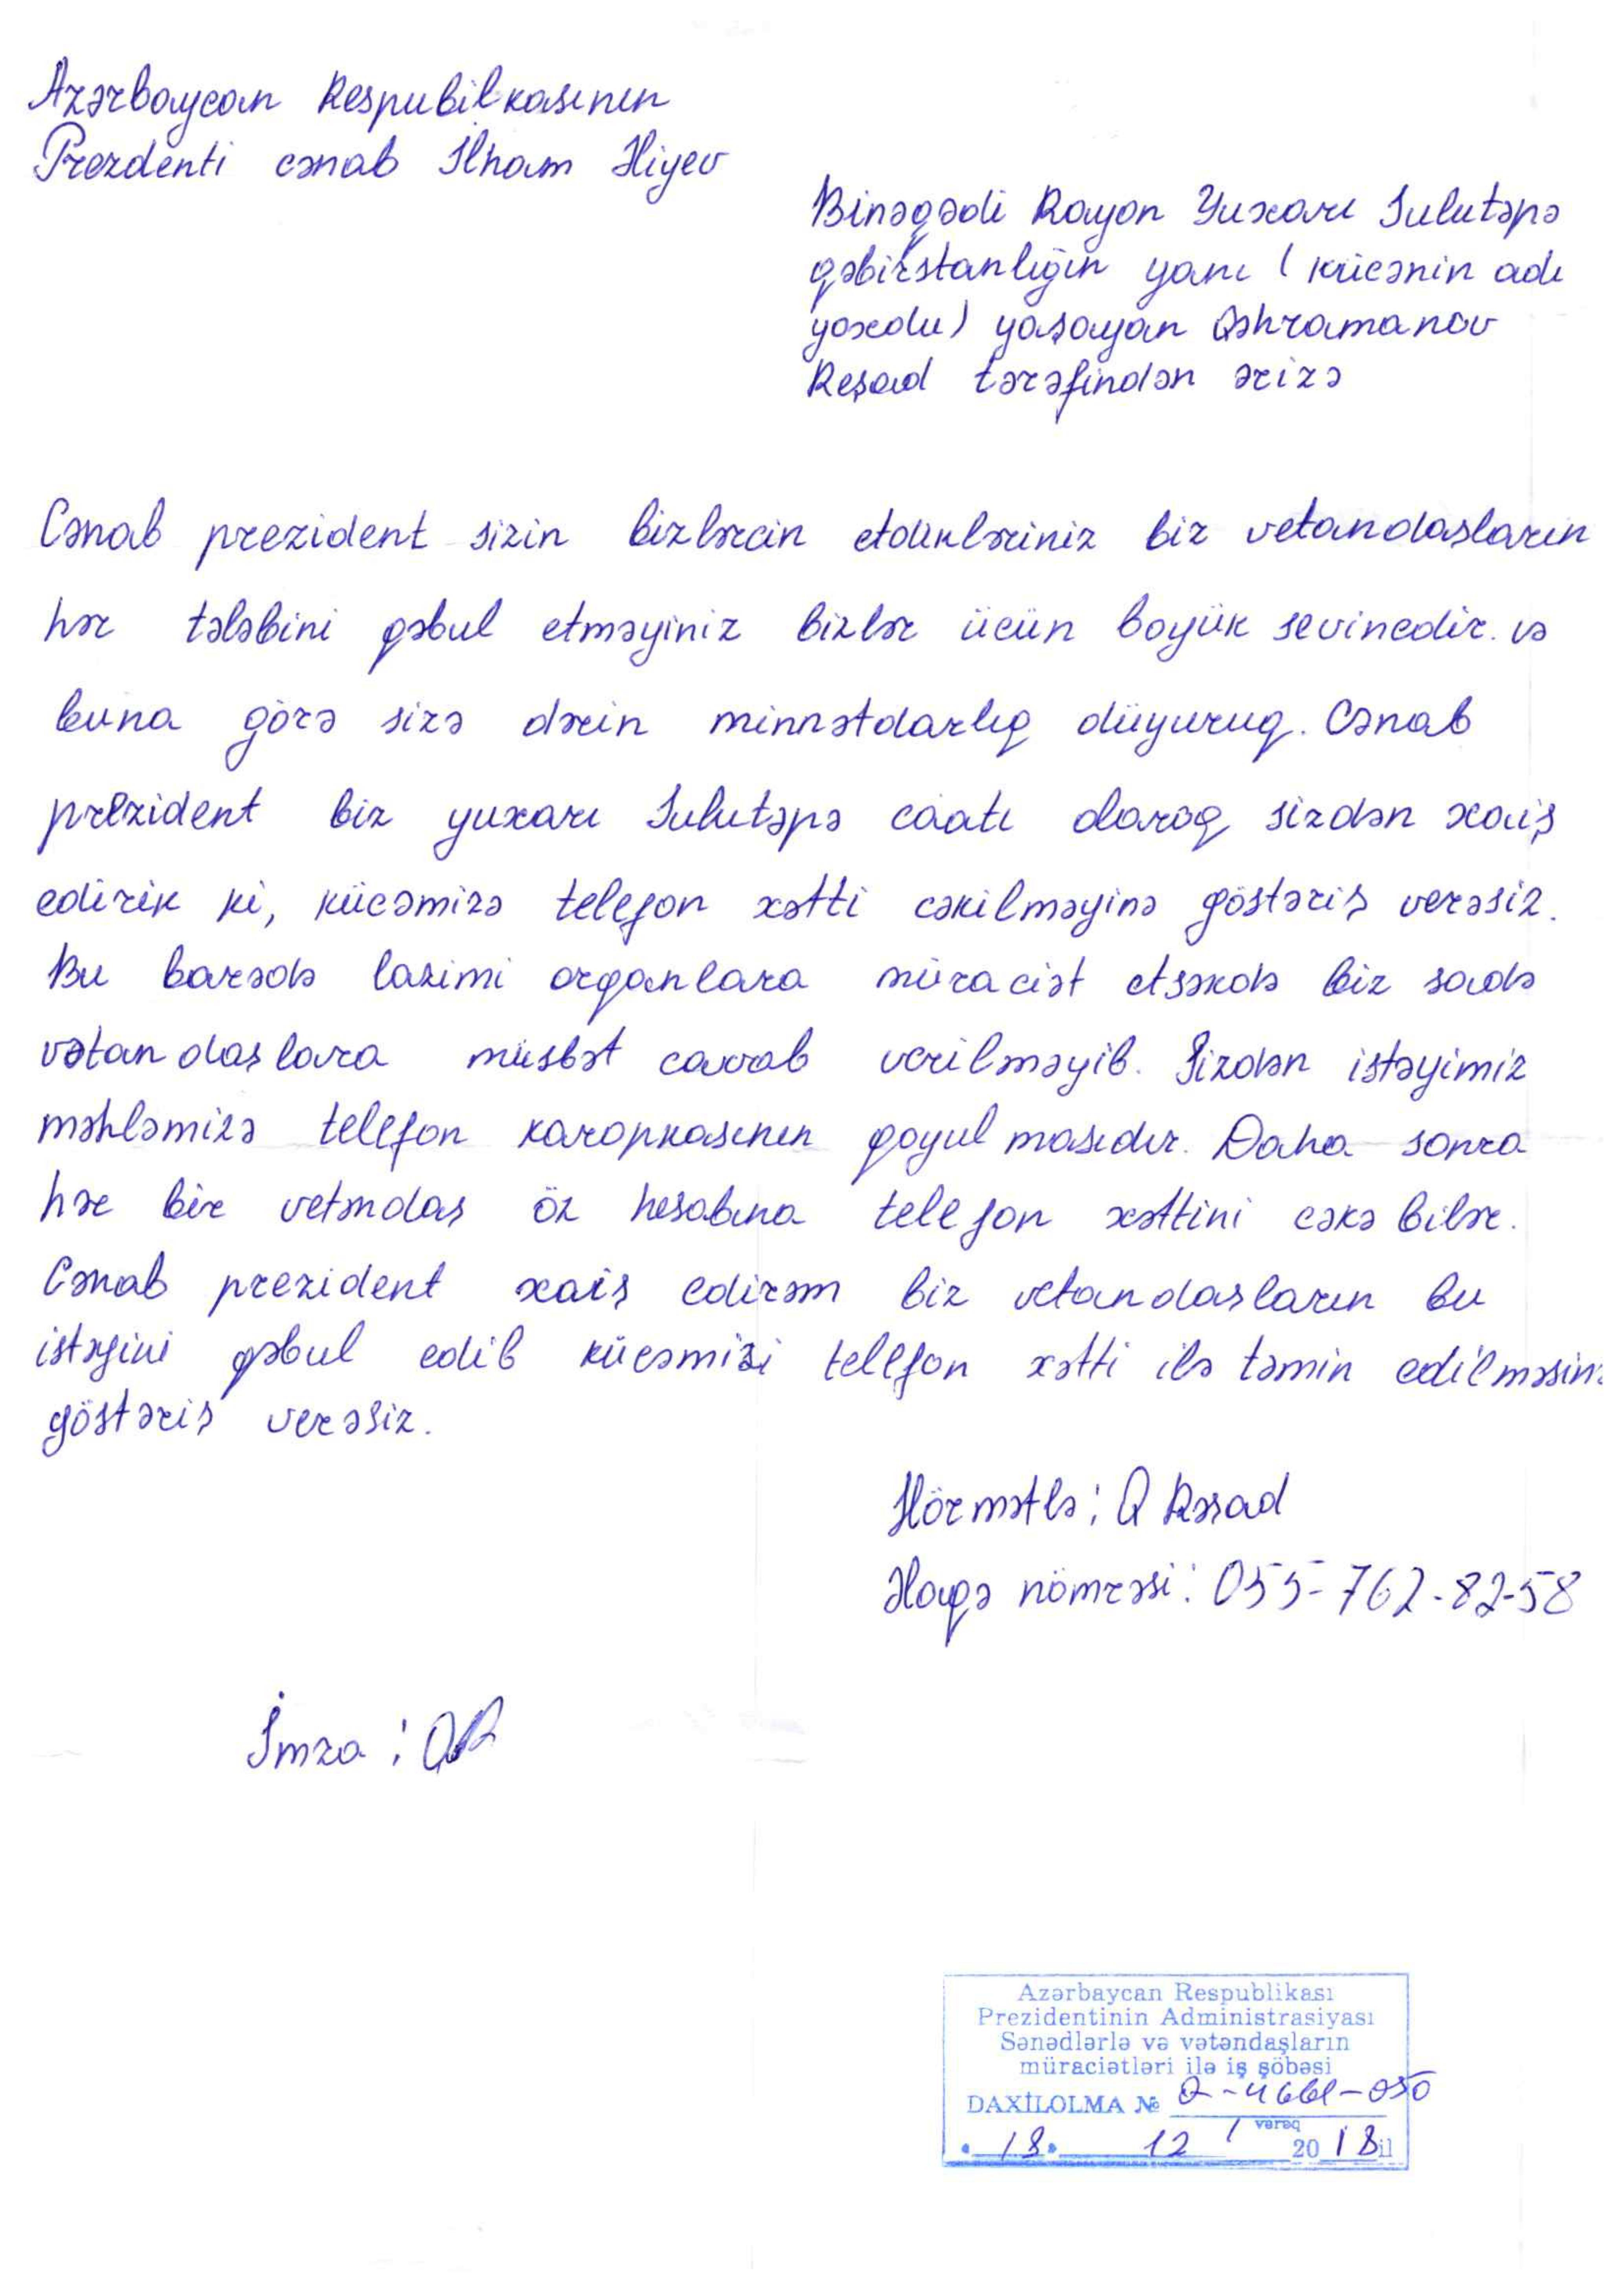 Azərbaycan Respubilkasının
Prezdenti cənab İlham Əliyev
Binəqədi Rayon Yuxarı Sulutəpə
qəbirstanlığın yanı (küçənin adı
yoxdu) yaşayan Qəhramanov
Reşad tərəfindən ərizə
Cənab prezident sizin bizlərcin etdikləriniz biz vetandasların
hər tələbini qəbul etməyiniz bizlər ücün boyük sevincdir. və
buna görə sizə dərin minnətdarlıq düyuruq. Cənab
prezident biz yuxarı Sulutəpə caatı olaraq sizdən xaiş
edirik ki, kücəmizə telefon xətti cəkilməyinə göstəriş verəsiz.
Bu barədə lazimi orqanlara müraciət etsəkdə biz sadə
vətandaşlara müsbət cavab verilməyib. Sizdən istəyimiz
məhləmizə telefon karopkasının qoyulmasıdır. Daha sonra
hər bir vetəndaş öz hesabına telefon xəttini cəkə bilər.
Cənab prezident xaiş edirəm biz vetandasların bu
istəyini qəbul edib kücəmizi telefon xətti ilə təmin edilməsinə
göstəriş verəsiz.
Hörmətlə: Q Rəşad
Əlaqə nömrəsi: 055-762-82-58
İmza: QR
Azərbaycan Respublikası
Prezidentinin Administrasiyası
Sənədlərlə və vətəndaşların
müraciətləri ilə iş şöbəsi
DAXİLOLMA №
1 vərəq
18 12 2018 il